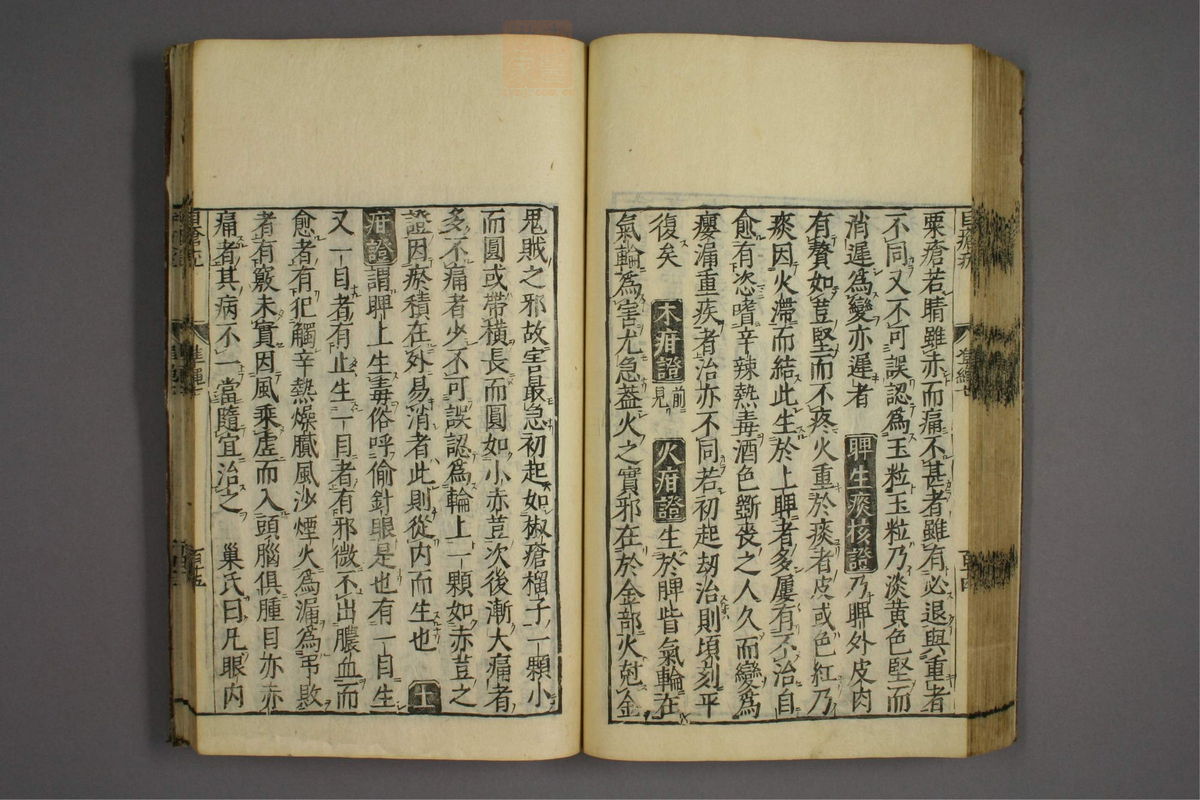 粟瘡若睛雖赤而痛不甚者雖有必退與重者
不同又不可誤認爲玉粒玉粒乃淡黃色堅而
消遲爲變亦遲者 睥生痰核證乃睥外皮肉
有贅如荳堅而不疼火重於痰者皮或色紅乃
痰因火滯而結此生於上睥者多屢有不治自
愈有恣嗜辛辣熱毒酒色斵喪之人久而變爲
癭漏重疾者治亦不同若初起劫治則頃刻平
復矣 木疳證前見 火疳證生於睥眥氣輪在
氣輪爲害尤急蓋火之實邪在於金部火尅金
鬼賊之邪故害最急初起如椒瘡榴子一顆小
而圓或帶橫長而圓如小赤荳次後漸大痛者
多不痛者少不可誤認爲輪上一顆如赤荳之
證因瘀積在外易消者此則從内而生也 土
疳證謂睥上生毒俗呼偷針眼是也有一目生
又一目者有止生一目者有邪微不出膿血而
愈者有犯觸辛熱燥膩風沙煙火爲漏爲弔敗
者有竅未實因風乘虛而入頭腦俱腫目亦赤
痛者其病不一當隨宜治之 巢氏曰凡眼内